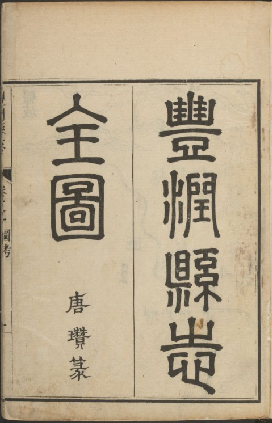 豐潤縣志
全圖
唐瓚篆